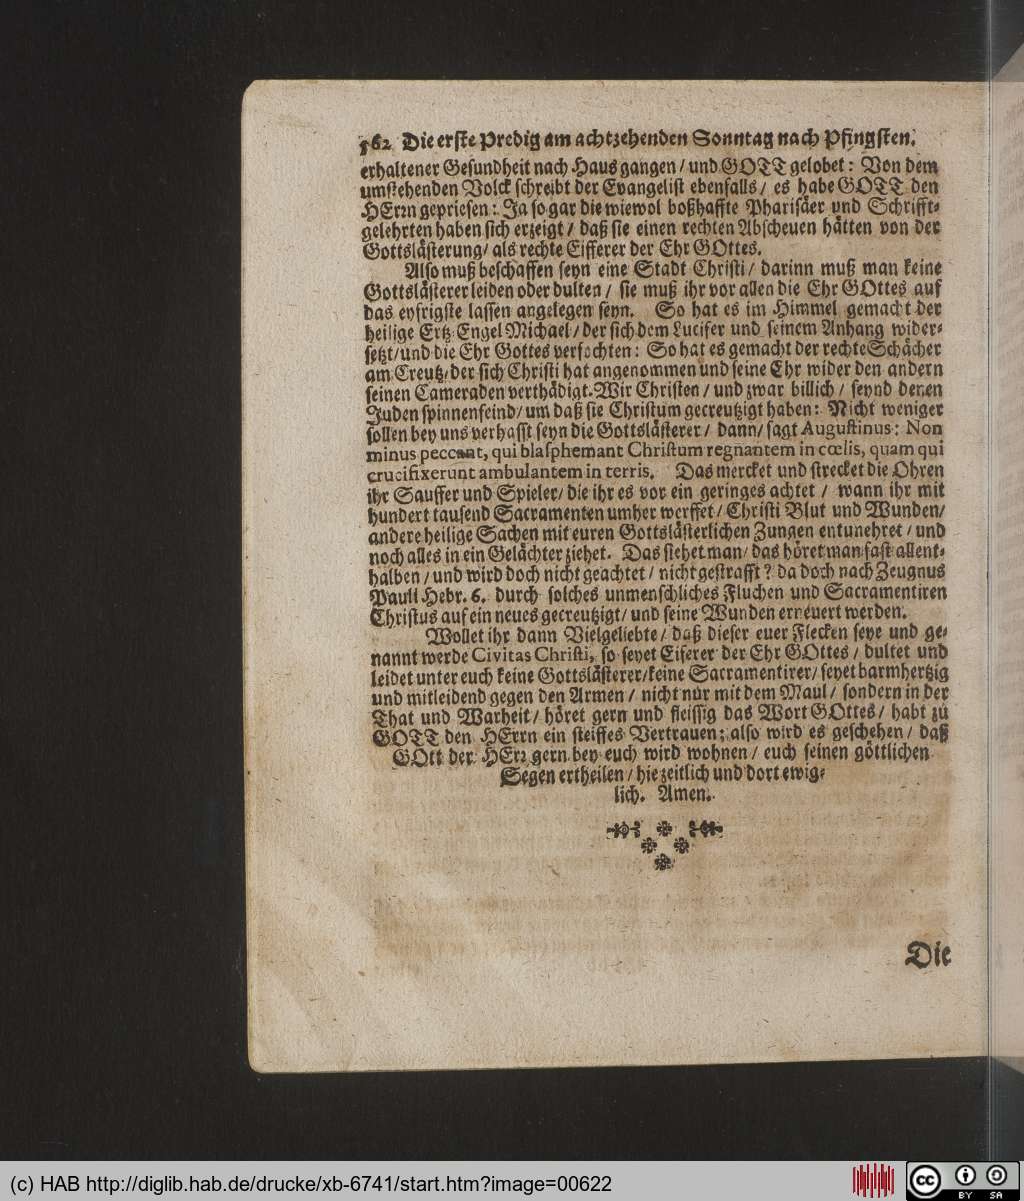 562 Die erste Predig am achtzehenden Sonntag nach Pfingsten.
erhaltener Gesundheit nach Haus gangen / und GOTT gelobet: Von dem
umstehenden Volck schreibt der Evangelist ebenfalls / es habe GOTT den
HErrn gepriesen: Ja so gar die wiewol boßhaffte Pharisäer und Schrifft-
gelehrten haben sich erzeigt / daß sie einen rechten Abscheuen hätten von der
Gottslästerung / als rechte Eifferer der Ehr GOttes.
Also muß beschaffen seyn eine Stadt Christi / darinn muß man keine
Gottslästerer leiden oder dulten / sie muß ihr vor allen die Ehr GOttes auf
das eyfrigste lassen angelegen seyn. So hat es im Himmel gemacht der
heilige Ertz-Engel Michael / der sich dem Lucifer und seinem Anhang wider-
setzt / und die Ehr Gottes verfochten: So hat es gemacht der rechte Schächer
am Creutz / der sich Christi hat angenommen und seine Ehr wider den andern
seinen Cameraden verthädigt. Wir Christen / und zwar billich / seynd denen
Juden spinnenfeind / um daß sie Christum gecreutzigt haben: Nicht weniger
sollen bey uns verhasst seyn die Gottslästerer / dann / sagt Augustinus: Non
minus peccant, qui blasphemant Christum regnantem in cœlis, quam qui
crucifixerunt ambulantem in terris. Das mercket und strecket die Ohren
ihr Sauffer und Spieler / die ihr es vor ein geringes achtet / wann ihr mit
hundert tausend Sacramenten umher werffet / Christi Blut und Wunden /
andere heilige Sachen mit euren Gottslästerlichen Zungen entunehret / und
noch alles in ein Gelächter ziehet. Das siehet man / das höret man fast allent-
halben / und wird doch nicht geachtet / nicht gestrafft? da doch nach Zeugnus
Pauli Hebr. 6. durch solches unmenschliches Fluchen und Sacramentiren
Christus auf ein neues gecreutzigt / und seine Wunden erneuert werden.
Wollet ihr dann Vielgeliebte / daß dieser euer Flecken seye und ge-
nannt werde Civitas Christi, so seyet Eiferer der Ehr GOttes / dultet und
leidet unter euch keine Gottslästerer / keine Sacramentirer / seyet barmhertzig
und mitleidend gegen den Armen / nicht nur mit dem Maul / sondern in der
That und Warheit / höret gern und fleissig das Wort GOttes / habt zu
GOTT den HErrn ein steiffes Vertrauen; also wird es geschehen / daß
GOtt der HErr gern bey euch wird wohnen / euch seinen göttlichen
Segen ertheilen / hie zeitlich und dort ewig-
lich. Amen.
Die
(c) HAB http://diglib.hab.de/drucke/xb-6741/start.htm?image=00622
cc BY SA